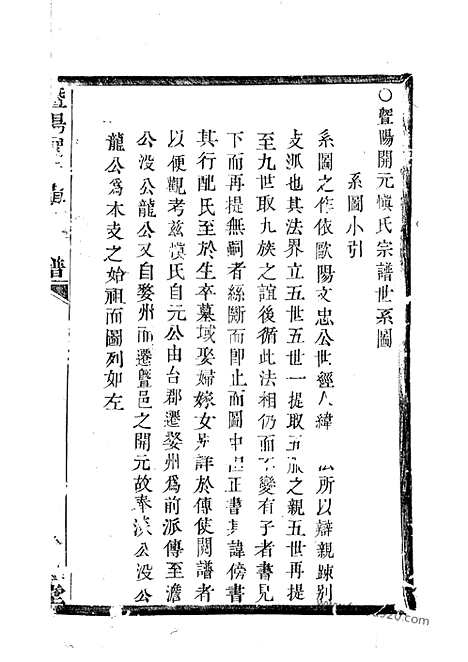 ○暨陽開元慎氏宗譜世系圖
系圖小引
系圖之作依歐陽文忠公世經人緯 法所以辯親踈別
支派也其法界立五世五世一提取五服之親五世再提
至九世取九族之誼後循此法相仍而不變有子者書見
下而再提無嗣者絲斷而即止而圖中但正書其諱傍書
其行配氏至於生卒墓域娶婦嫁女另詳於傳使閱譜者
以便觀考茲慎氏自元公由台郡遷婺州爲前派傳至澹
公没公龍公又自婺州而遷暨邑之開元故奉淡公没公
龍公爲本支之始祖而圖列如左
譜